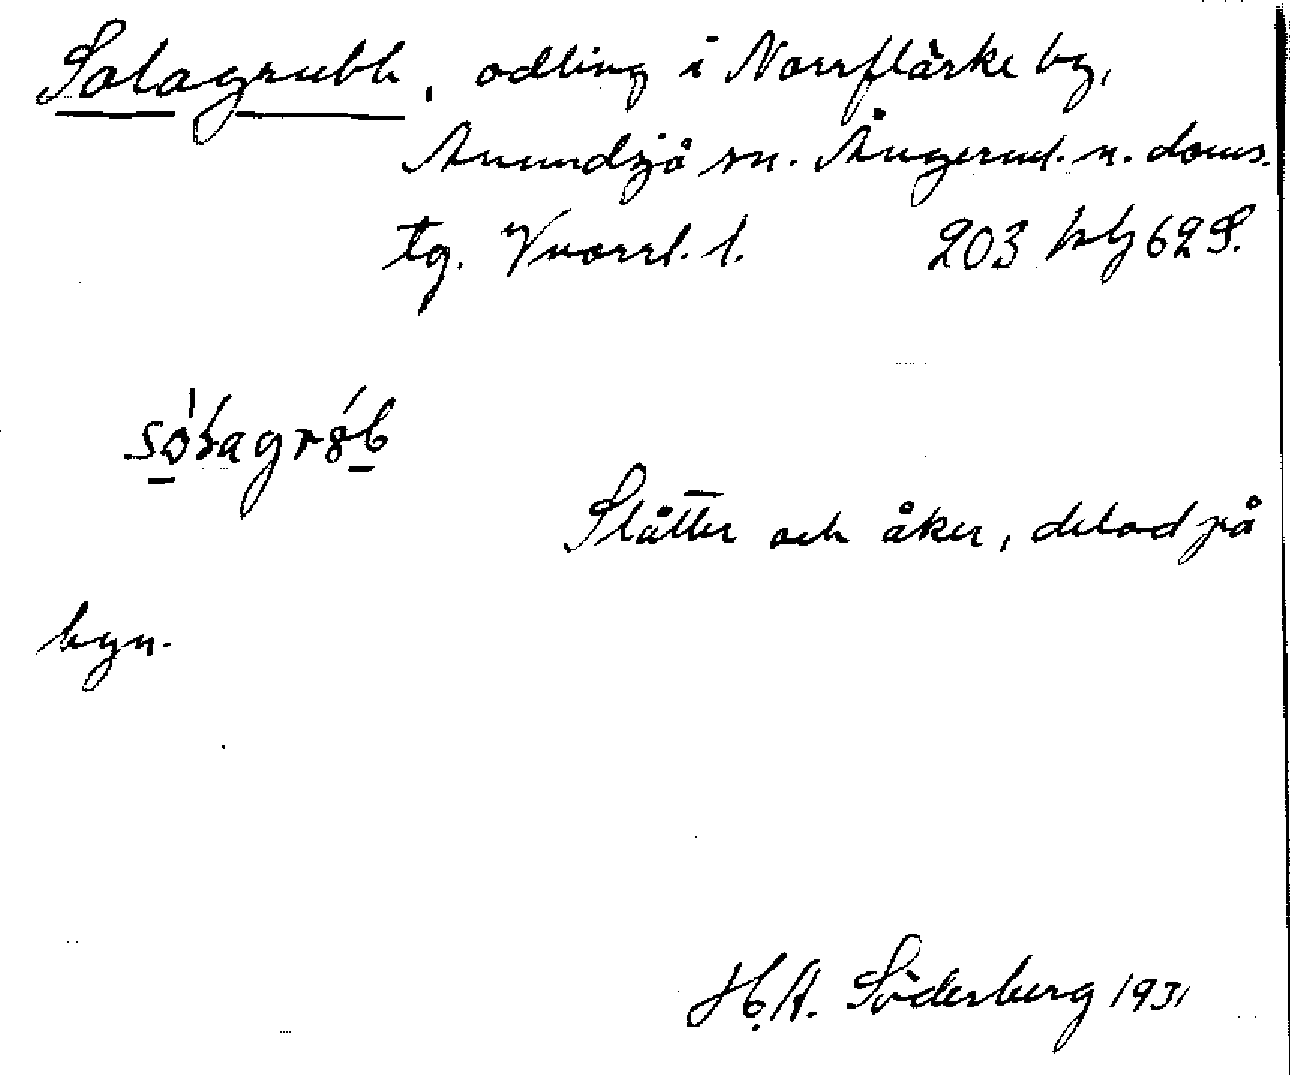 Solagrubb, odling i Norrflärke by,
Anundsjö sn. Ångerml. n. doms.
tg. Vnorrl. l. 203 62 S.
Slåtter och åker, delad på
byn.
H. A. Söderberg 1931